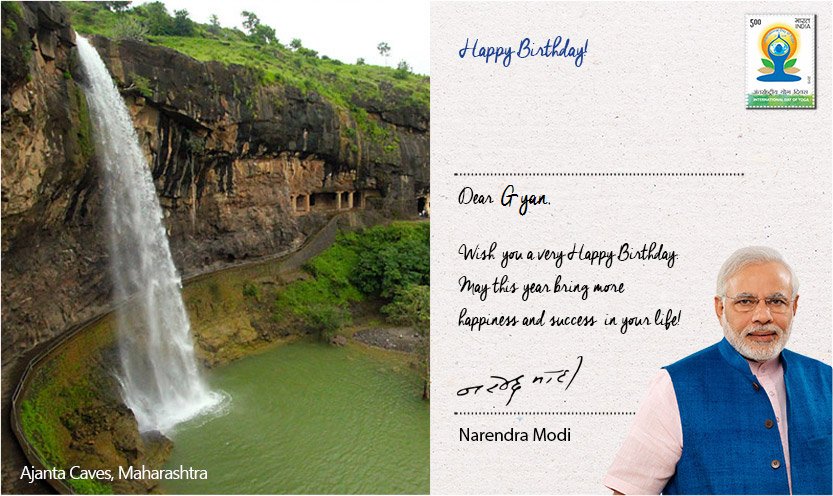 Happy Birthday!
5.00 भारत
INDIA
अंतर्राष्ट्रीय योग दिवस
INTERNATIONAL DAY OF YOGA
Dear Gyan,
Wish you a very Happy Birthday.
May this year bring more
happiness and success in your life!
नरेन्द्र मोदी
Narendra Modi
Ajanta Caves, Maharashtra